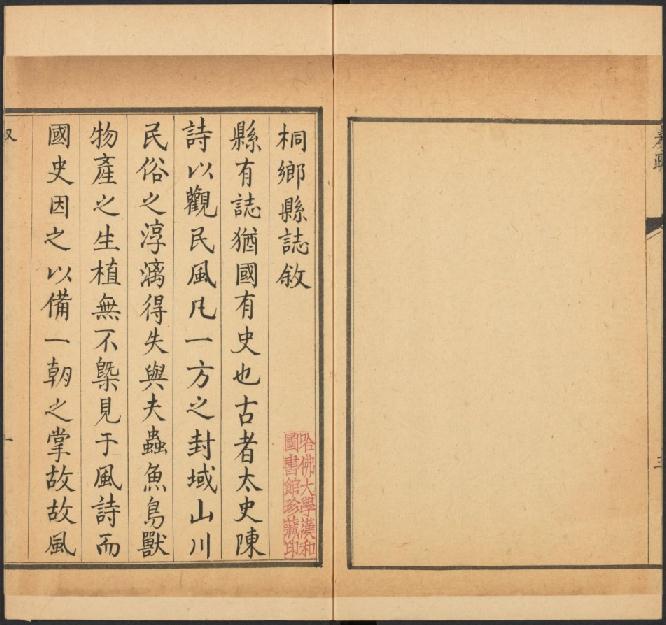 桐鄉縣誌敘
縣有誌猶國有史也古者太史陳
詩以觀民風凡一方之封域山川
民俗之淳漓得失與夫蟲魚鳥獸
物產之生植無不槩見于風詩而
國史因之以備一朝之掌故故風
哈佛大學漢和
圖書館珍藏印